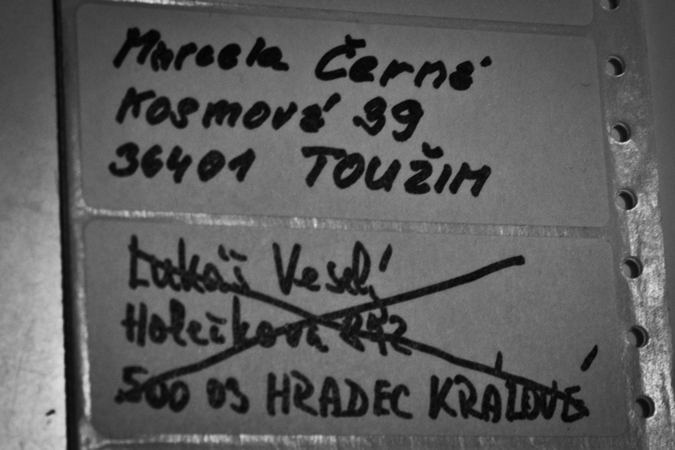 Marcela Černá
Kosmová 39
36401 TOUŽIM
Lukáš Veselý
Holečkova
500 03 HRADEC KRÁLOVÉ